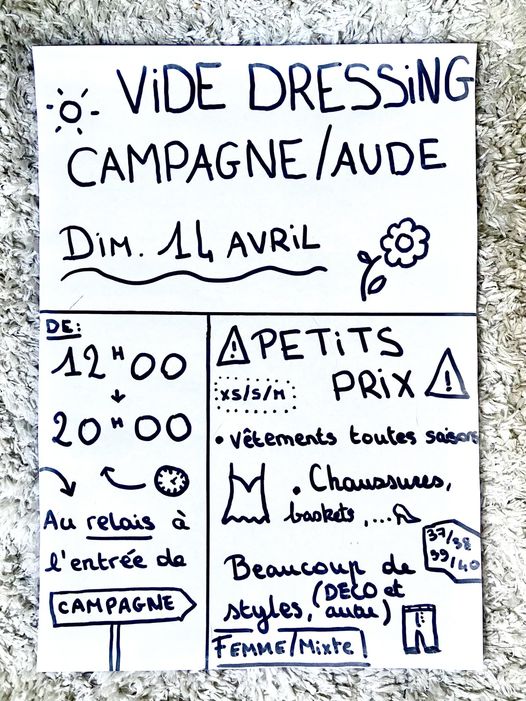 ViDE DRESSiNG
CAMPAGNE/AUDE
DiM. 14 AVRiL
DE:
12H00
20H00
Au relais à
l'entrée de
CAMPAGNE
PETiTS
PRiX
XS/S/M
• vêtements toutes saisons
• Chaussures,
baskets,...
37/38
39/40
Beaucoup de
styles, (DÉCO et
autre)
FEMME/Mixte!